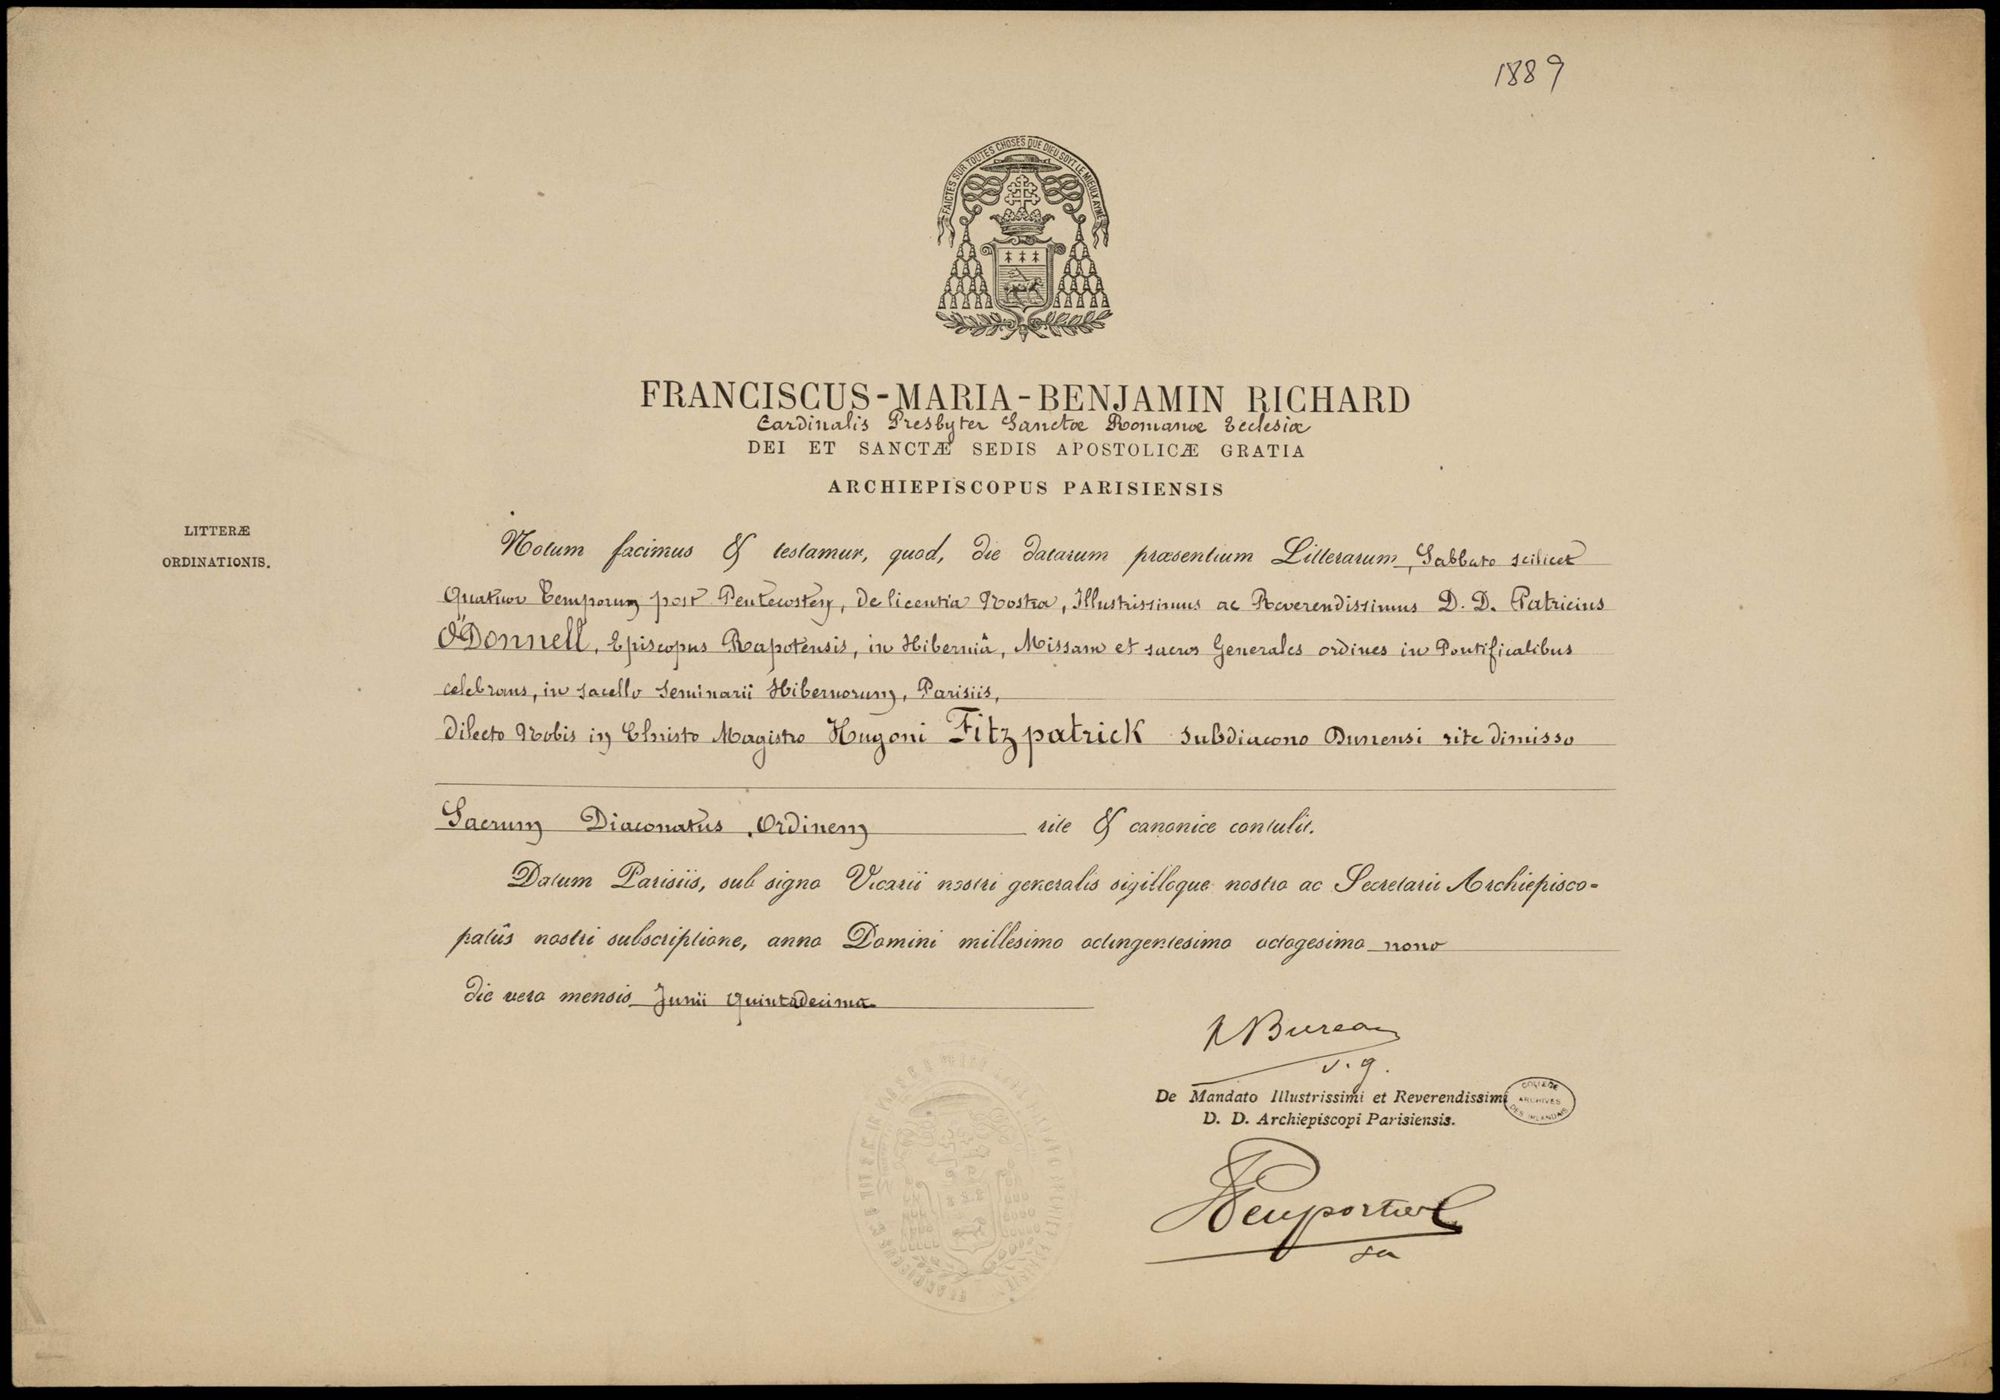 1889
FAICTES SUR TOUTES CHOSES QUE DIEU SOYT LE MIEULX AYMÉ
FRANCISCUS-MARIA-BENJAMIN RICHARD
Cardinalis Presbyter Sanctæ Romanæ Ecclesiæ
DEI ET SANCTÆ SEDIS APOSTOLICÆ GRATIA
ARCHIEPISCOPUS PARISIENSIS
LITTERÆ
ORDINATIONIS.
Notum facimus & testamur, quod, die datarum præsentium Litterarum, Sabbato scilicet
Quatuor Temporum post Pentecosten, de licentia Nostra, Illustrissimus ac Reverendissimus D. D. Patricius
O'Donnell, Episcopus Rapotensis, in Hiberniâ, Missam et sacros Generales ordines in Pontificalibus
celebrans, in sacello Seminarii Hibernorum, Parisiis,
dilecto Nobis in Christo Magistro Hugoni Fitzpatrick subdiacono Dunensi rite dimisso
Sacrum Diaconatus Ordinem rite & canonice contulit.
Datum Parisiis, sub signo Vicarii nostri generalis sigilloque nostro ac Secretarii Archiepisco-
patûs nostri subscriptione, anno Domini millesimo octingentesimo octogesimo nono
die vero mensis Junii quintadecima
Bureau
v. g.
De Mandato Illustrissimi et Reverendissimi
D. D. Archiepiscopi Parisiensis.
COLLÈGE
ARCHIVES
DES IRLANDAIS